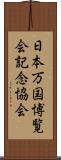 日本万国博覧
会記念協会